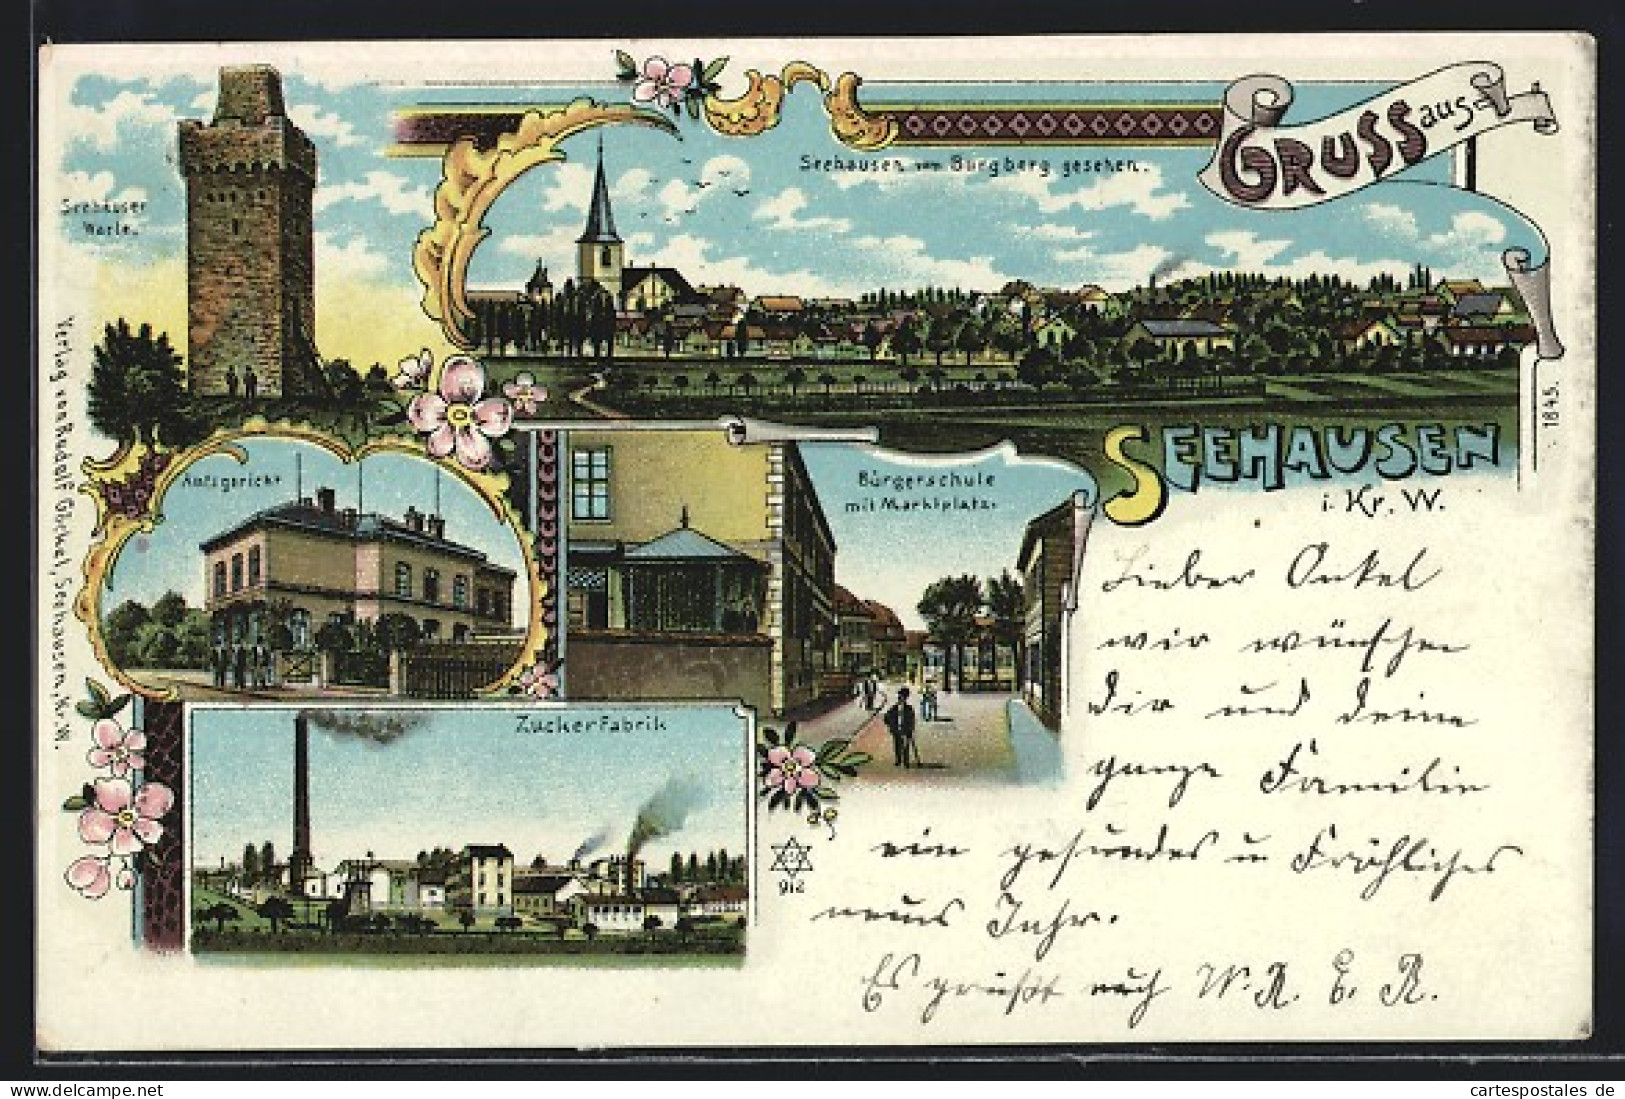 GRUSS aus
Seehausen vom Burgberg gesehen.
Seehäuser
Warte.
SEEHAUSEN
i. Kr. W.
1845.
Amtsgericht
Bürgerschule
mit Marktplatz.
Zuckerfabrik
Verlag von Rudolf Göthel, Seehausen, Kr. W.
912
Lieber Onkel
wir wünschen
dir und deine
ganze Familie
ein gesundes u Fröhliches
neues Jahr.
Es grüßt euch W. R. E. R.
cartespostales de